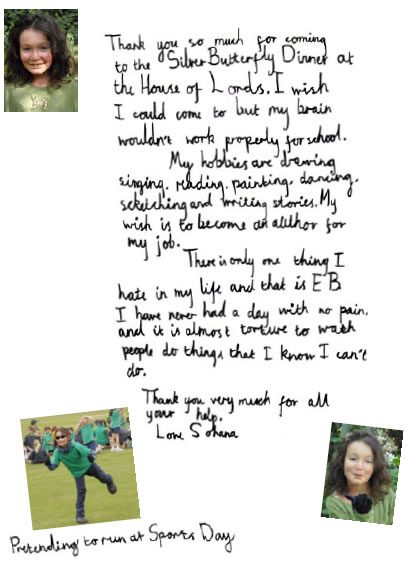 Thank you so much for coming
to the Silver Butterfly Dinner at
the House of Lords. I wish
I could come to but my brain
wouldn't work properly for school.
My hobbies are drawing
singing, reading, painting, dancing,
scketching and writing stories. My
wish is to become an aUthor for
my job.
There is only one thing I
hate in my life and that is EB
I have never had a day with no pain,
and it is almost torture to watch
people do things that I know I can't
do.
Thank you very much for all
your help.
Love Sohana
Pretending to run at Sports Day